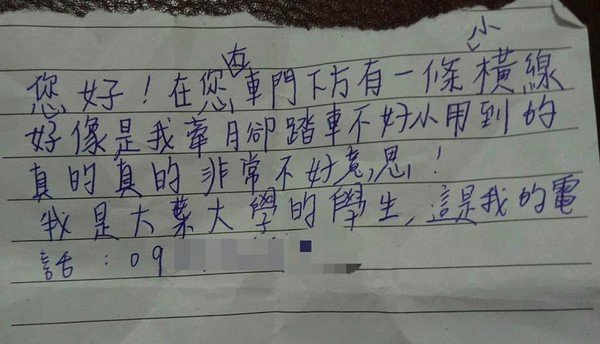 您好！在您右車門下方有一條小橫線
好像是我牽月卻踏車不好小用到的
真的真的非常不好意思！
我是大葉大學的學生，這是我的電
話：09